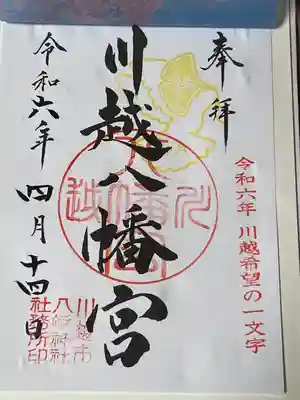 奉拝
令和六年 川越希望の一文字
川越八幡宮
令和六年 四月 十四日
川越市
八幡神社
社務所印